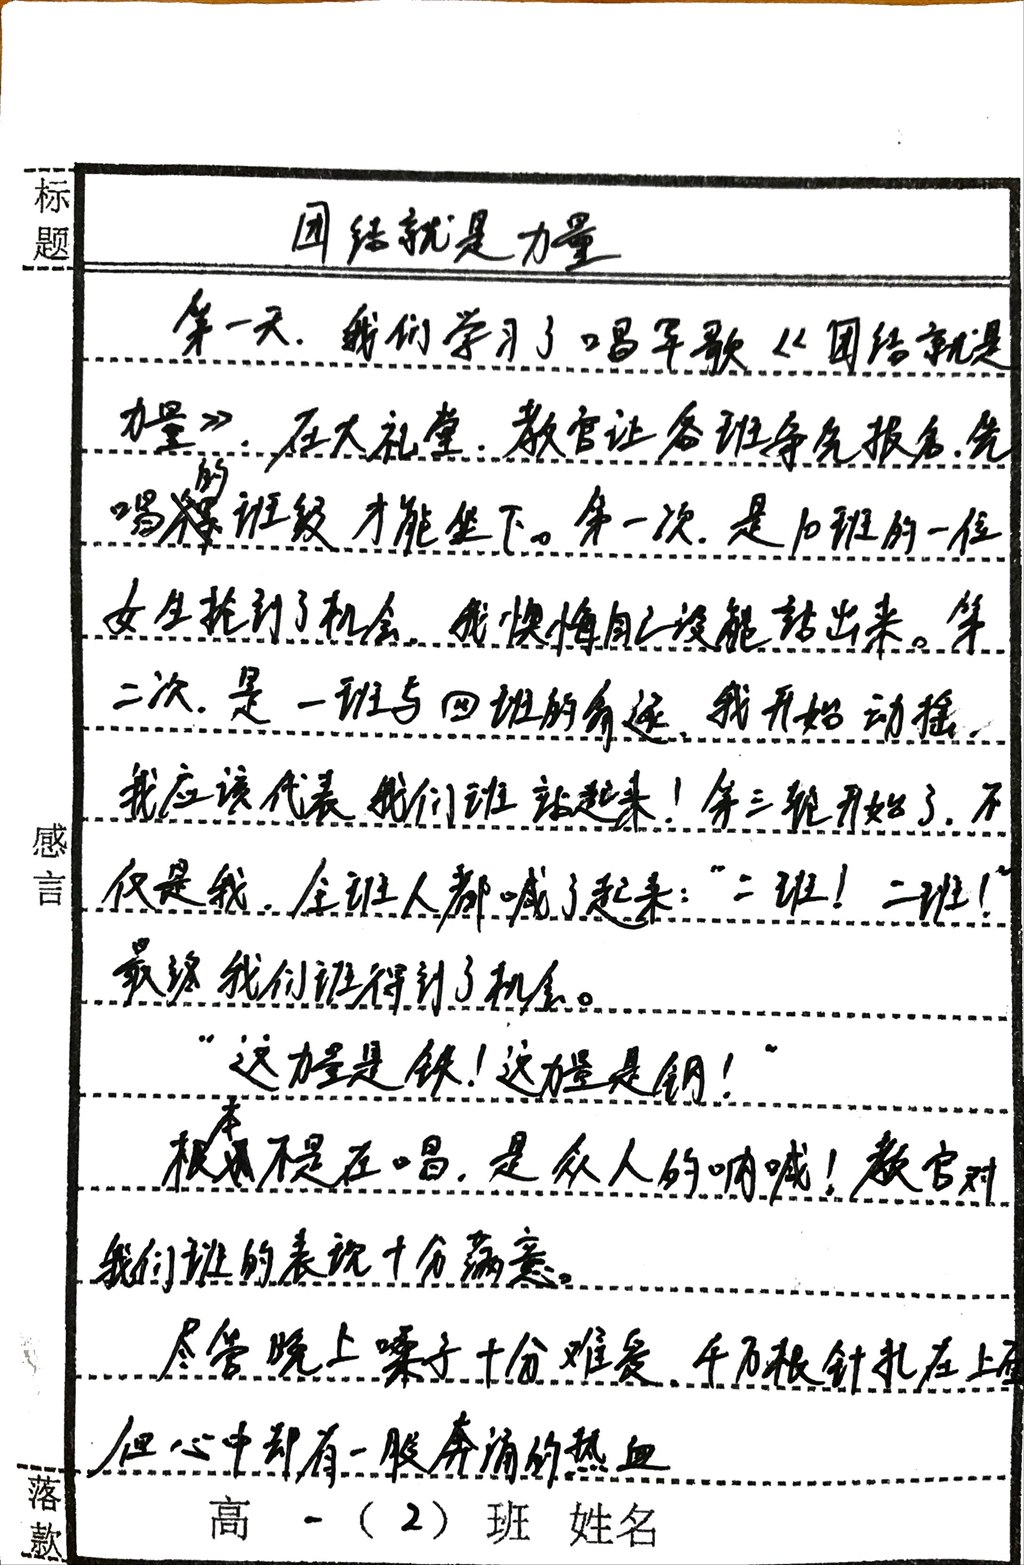 标题
团结就是力量
第一天，我们学习了唱军歌《团结就是
力量》，在大礼堂，教官让各班争先报名，先
唱的班级才能坐下。第一次，是10班的一位
女生抢到了机会，我懊悔自己没能站出来。第
二次，是一班与四班的角逐，我开始动摇，
我应该代表我们班站起来！第三轮开始了，不
仅是我，全班人都喊了起来："二班！二班！"
最终我们班得到了机会。
"这力量是铁！这力量是钢！"
根本不是在唱，是众人的呐喊！教官对
我们班的表现十分满意。
尽管晚上嗓子十分难受，千万根针扎在上面
但心中却有一股奔涌的热血
感言
落款
高一（2）班 姓名